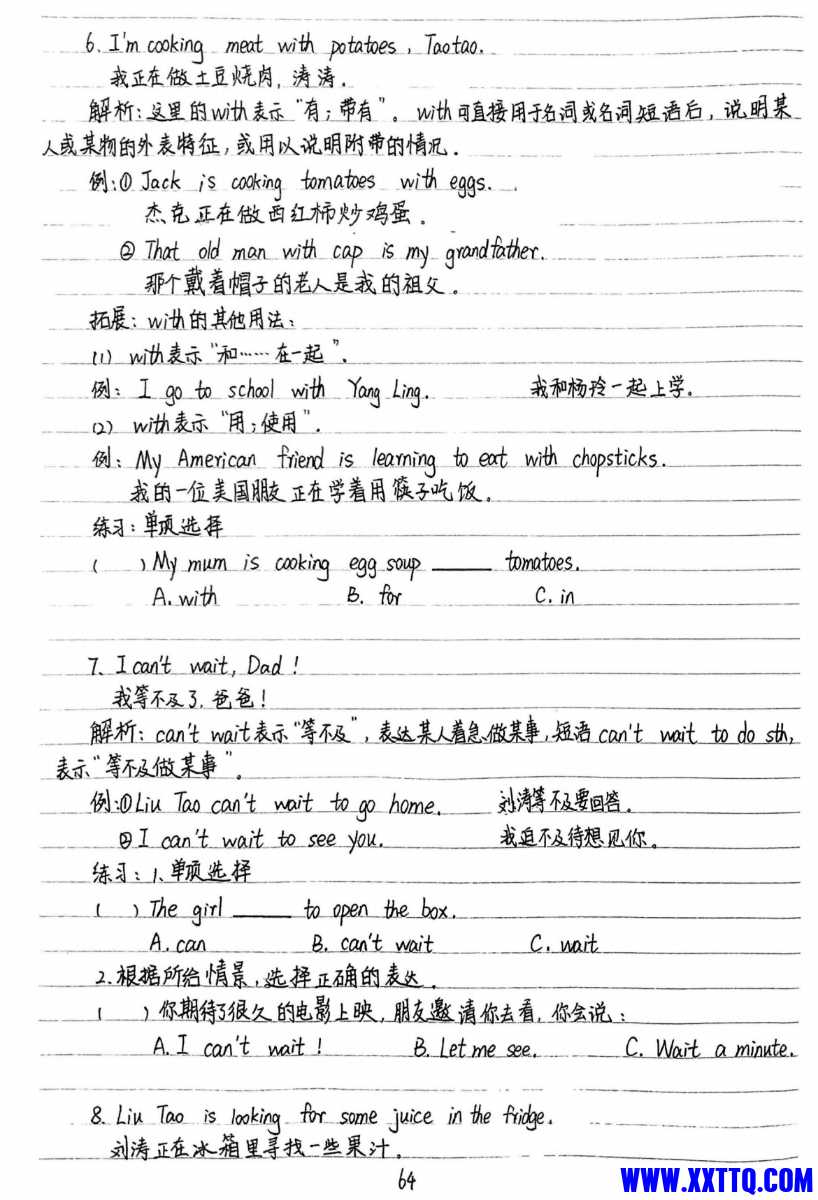 6. I'm cooking meat with potatoes, Taotao.
我正在做土豆烧肉, 涛涛.
解析:这里的with表示“有;带有”。with可直接用于名词或名词短语后,说明某
人或某物的外表特征,或用以说明附带的情况.
例:① Jack is cooking tomatoes with eggs.
杰克正在做西红柿炒鸡蛋。
② That old man with cap is my grandfather.
那个戴着帽子的老人是我的祖父。
拓展:with的其他用法:
(1) with表示“和……在一起”.
例: I go to school with Yang Ling. 我和杨玲一起上学。
(2) with表示“用;使用”.
例: My American friend is learning to eat with chopsticks.
我的一位美国朋友正在学着用筷子吃饭。
练习:单项选择
( )My mum is cooking egg soup ______ tomatoes.
A. with B. for C. in
7. I can't wait, Dad!
我等不及了,爸爸!
解析: can't wait表示“等不及”,表达某人着急做某事,短语can't wait to do sth,
表示“等不及做某事”。
例:①Liu Tao can't wait to go home. 刘涛等不及要回答。
②I can't wait to see you. 我迫不及待想见你。
练习:1、单项选择
( )The girl ______ to open the box.
A. can B. can't wait C. wait
2.根据所给情景,选择正确的表达.
( )你期待了很久的电影上映,朋友邀请你去看,你会说:
A. I can't wait! B. Let me see. C. Wait a minute.
8. Liu Tao is looking for some juice in the fridge.
刘涛正在冰箱里寻找一些果汁.
64
WWW.XXTTQ.COM